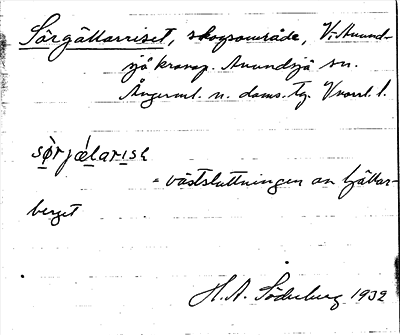 Sörgällarriset, skogsområde, V. Anund-
sjö kronop. Anundsjö sn.
Ångerml. n. doms. tg. Vnorrl. l.
sø̀rjǽlarɪsɛ
= västsluttningen av Gällar-
berget
H. A. Söderberg 1932